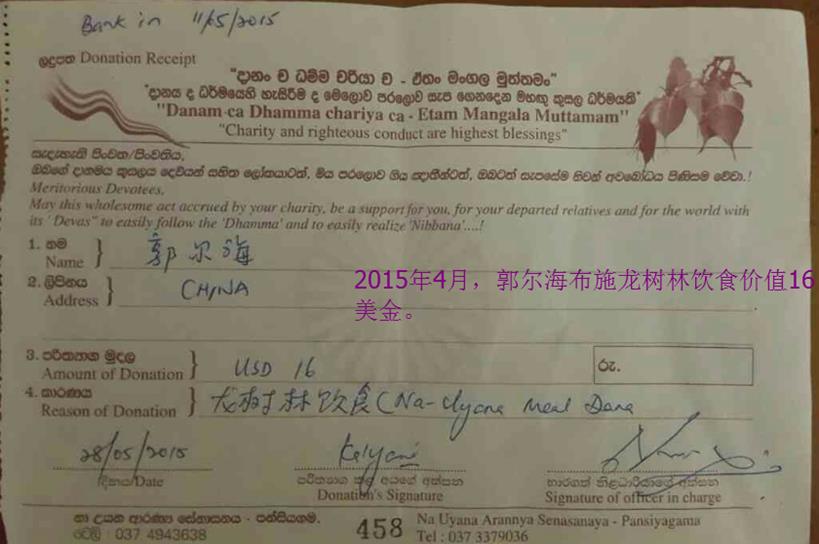 Bank in 11/05/2015
ලදුපත Donation Receipt
"දානං ච ධම්ම චරියා ච - ඒතං මංගල මුත්තමං"
"දානය ද ධර්මයෙහි හැසිරීම ද මෙලොව පරලොව සැප ගෙනදෙන මහඟු කුසල ධර්මයති"
"Danam-ca Dhamma chariya ca - Etam Mangala Muttamam"
"Charity and righteous conduct are highest blessings"
සැදැහැති පිංවත/පිංවතිය,
ඔබගේ දානමය කුසලය දෙවියන් සහිත ලෝකයාටත්, මිය පරලොව ගිය ඥාතීන්ටත්, ඔබටත් සැපසේම නිවන් අවබෝධය පිණිසම වේවා.!
Meritorious Devotees,
May this wholesome act accrued by your charity, be a support for you, for your departed relatives and for the world with
its 'Devas" to easily follow the 'Dhamma' and to easily realize 'Nibbana'....!
1. නම
Name } 郭尔海
2. ලිපිනය
Address } CHINA
2015年4月，郭尔海布施龙树林饮食价值16
美金。
3. පරිත්‍යාග මුදල
Amount of Donation } USD 16
රු.
4. කාරණය
Reason of Donation }龙树林饮食(Na-Uyana Meal Dana
28/05/2015 Kalyani
දිනය/Date
පරිත්‍යාග කළ අයගේ අත්සන
Donation's Signature
භාරගත් නිළධාරියාගේ අත්සන
Signature of officer in charge
නා උයන ආරණ්‍ය සේනාසනය - පන්සියගම.
ටෙලි : 037 4943638
458
Na Uyana Arannya Senasanaya - Pansiyagama
Tel : 037 3379036